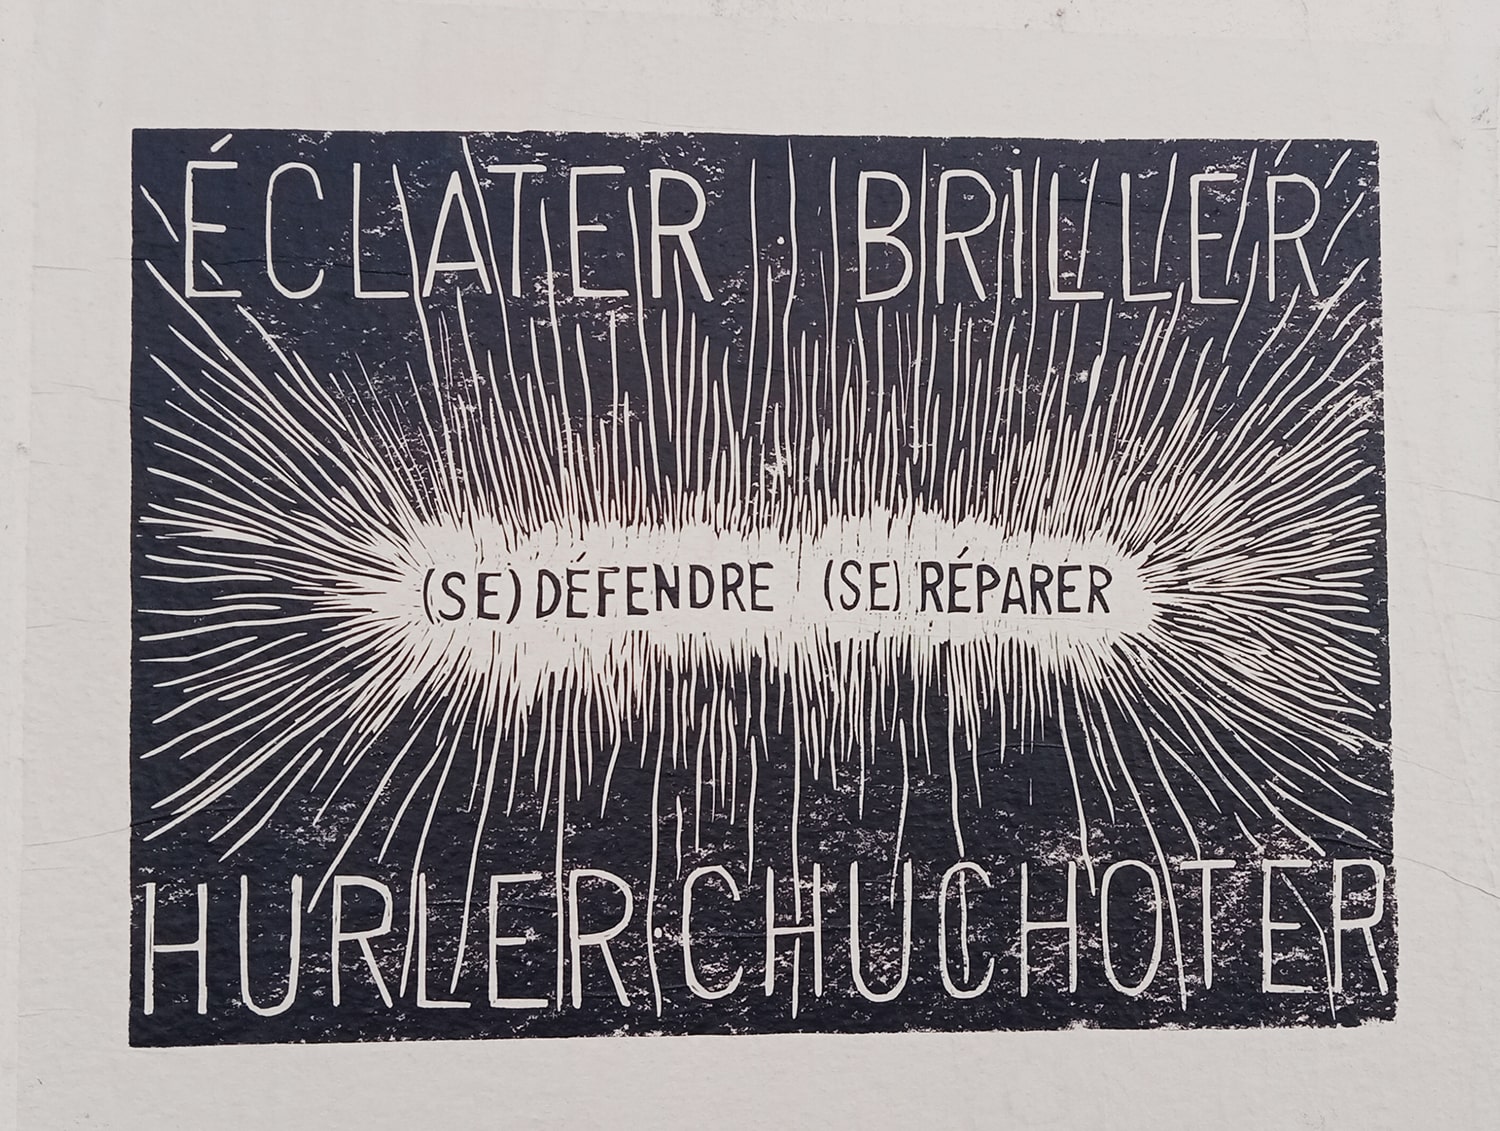 ÉCLATER · BRILLER
(SE) DÉFENDRE (SE) RÉPARER
HURLER · CHUCHOTER